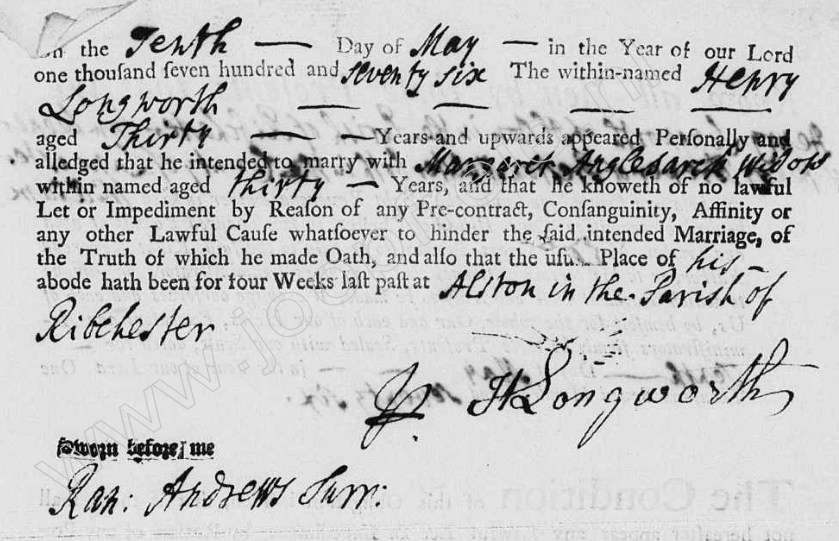 On the Tenth — Day of May — in the Year of our Lord
one thouſand ſeven hundred and seventy six The within-named Henry
Longworth — — —
aged Thirty — — Years and upwards appeared Perſonally and
alledged that he intended to marry with Margaret Anglesarck Widow
within named aged thirty — Years, and that he knoweth of no lawful
Let or Impediment by Reaſon of any Pre-contract, Conſanguinity, Affinity or
any other Lawful Cauſe whatſoever to hinder the ſaid intended Marriage, of
the Truth of which he made Oath, and alſo that the uſu.. Place of his
abode hath been for four Weeks laſt paſt at Alston in the Parish of
Ribchester
H Longworth
Sworn before me
Ran: Andrews Surr: